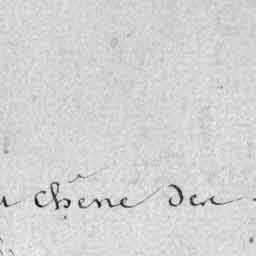 chêne der